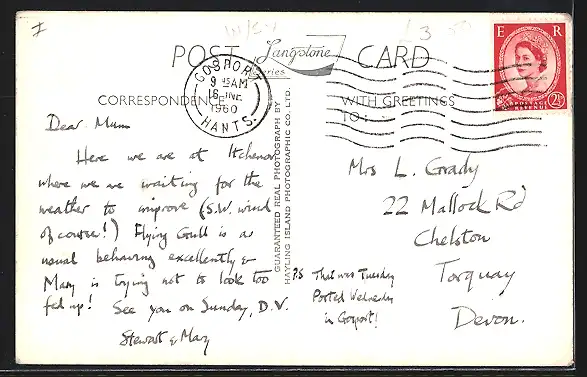 I
W/SY
£3.50
POST CARD
Langstone
Series
E R
POSTAGE
REVENUE
2½D
GOSPORT
9 45 AM
15 JNE
1960
HANTS.
CORRESPONDENCE
WITH GREETINGS
TO:
GUARANTEED REAL PHOTOGRAPH BY
HAYLING ISLAND PHOTOGRAPHIC CO. LTD.
Dear Mum
Here we are at Itchenor
where we are waiting for the
weather to improve (S.W. wind
of course!) Flying Gull is as
usual behaving excellently &
Mary is trying not to look too
fed up! See you on Sunday, D.V.
Stewart & Mary
P.S That was Tuesday
Posted Wednesday
in Gosport!
Mrs L. Grady
22 Mallock Rd
Chelston
Torquay
Devon.